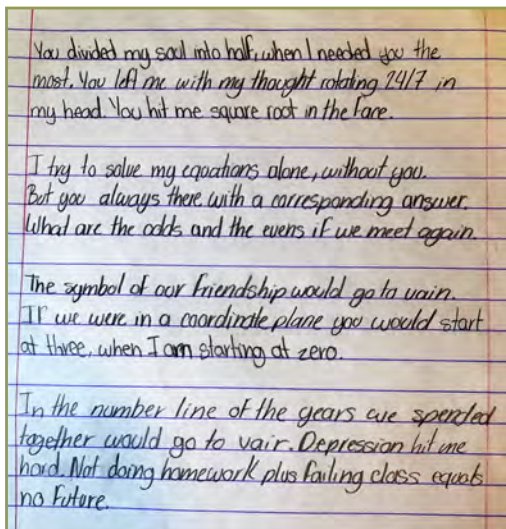 You divided my soul into half, when I needed you the
most. You left me with my thought rotating 24/7 in
my head. You hit me square root in the face.
I try to solve my equations alone, without you.
But you always there with a corresponding answer.
What are the odds and the evens if we meet again.
The symbol of our friendship would go to vain.
If we were in a coordinate plane you would start
at three, when I am starting at zero.
In the number line of the years we spended
together would go to vain. Depression hit me
hard. Not doing homework plus failing class equals
no future.